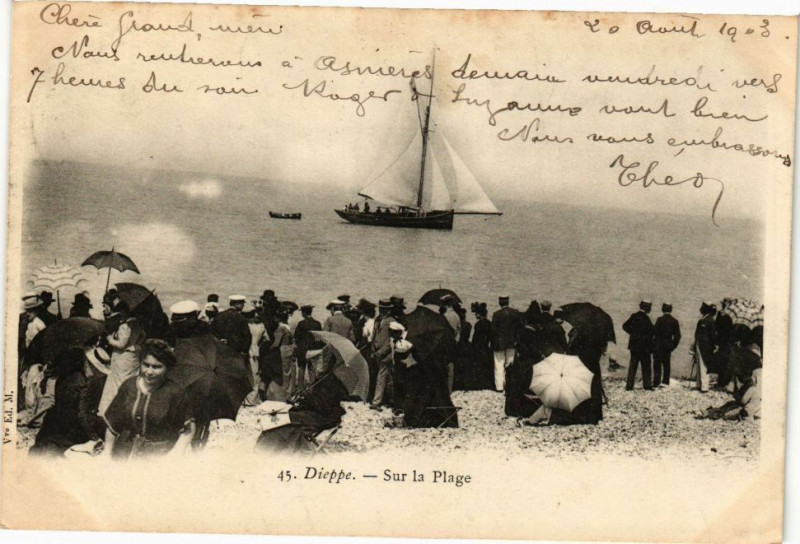 Chère grand, mère 20 Août 1903.
Nous rentrerons à Asnières demain vendredi vers
7 heures du soir Roger & Suzanne vont bien
Nous vous embrassons
Théo
45. Dieppe. — Sur la Plage
Vve Ed. M.